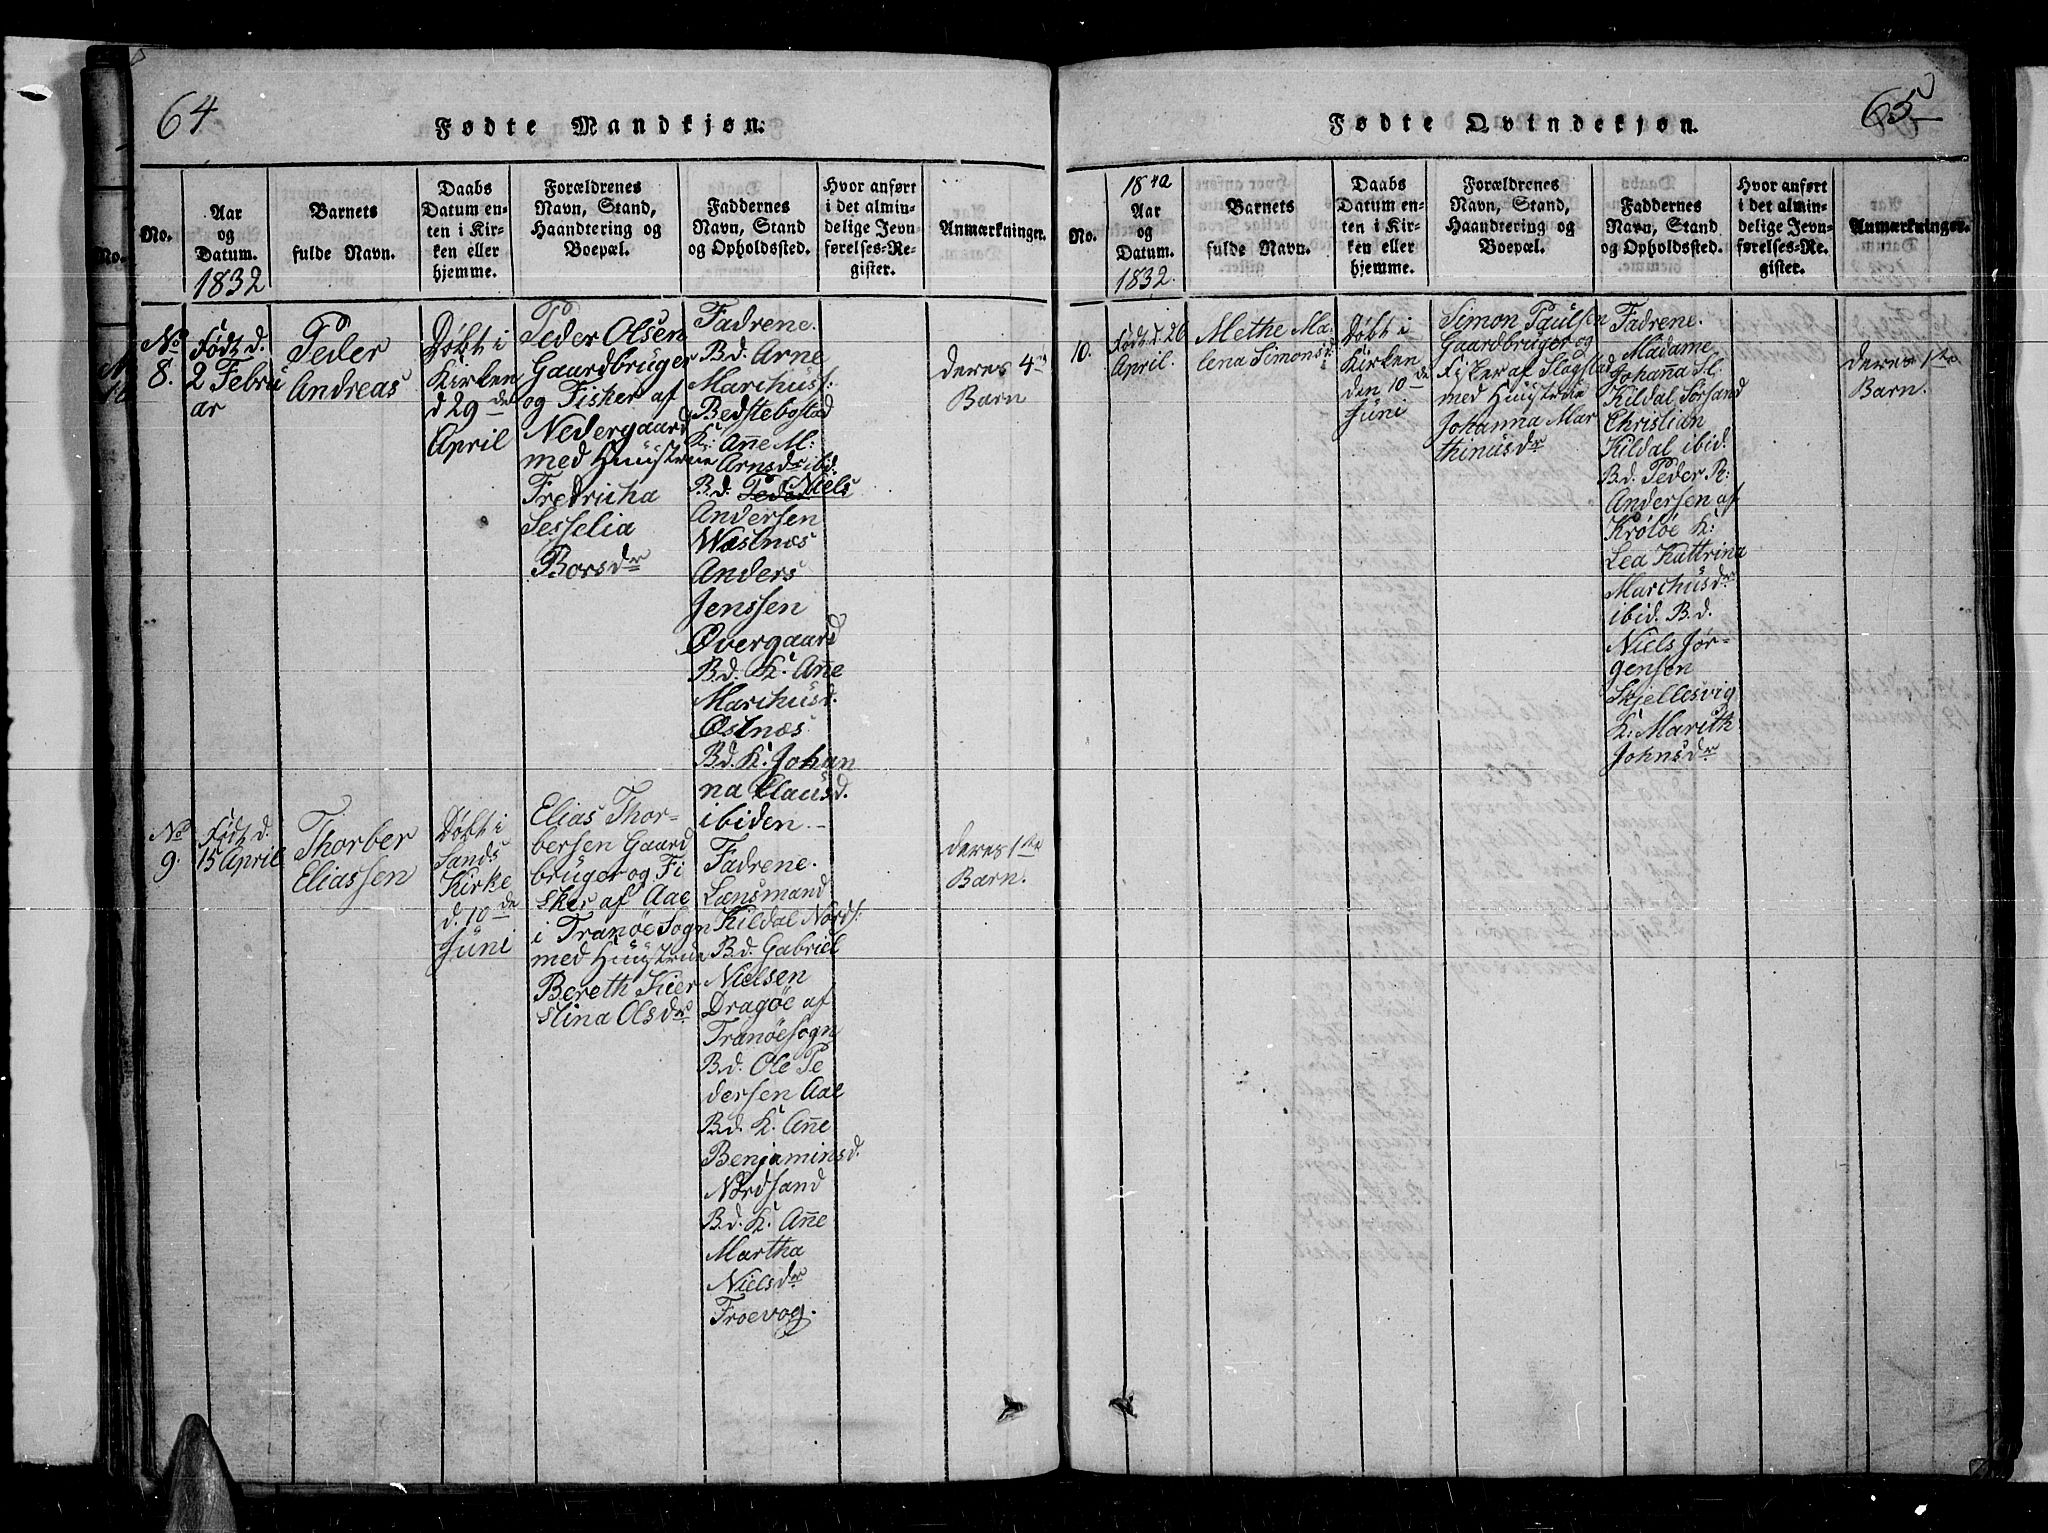 64
Fødte Mandkjøn.
No.
Aar
og
Datum.
1832
Barnets
fulde Navn.
Daabs
Datum en-
ten i Kir-
ken eller
hjemme.
Forældrenes
Navn, Stand,
Haandtering og
Boepæl.
Faddernes
Navn, Stand
og Opholdssted.
Hvor anført
i det almin-
delige Jevn-
førelses-Re-
gister.
Anmærkninger.
No
8.
Født d.
2 Febru
ar
Peder
Andreas
Døbt i
Kirken
d 29de
April
Peder Olsen
Gaardbruger
og Fisker af
Nedergaard
med Huustrue
Fredricha
Sesselia
Borsdr
Fadrene.
Bd. Arne
Marchuss:
Bedstebostad
K: Ane M:
Arnsdr ibd.
B.d. Peder Niels
Andersen
Wæstnæs
Anders
Jenssen
Øvergaard
B.d. K. Ane
Marchusd.
Østnæs
Bd. K. Johan
na Clausd.
ibiden.
deres 4de
Barn
No
9.
Født d.
15 April
Thorber
Eliassen
Døbt i
Sands
Kirke
d. 10de
Juni
Elias Thor-
bersen Gaard
bruger og Fi
sker af Aae
i Tranöe Sogn
med Huustrue
Bereth Kier
stina Olsdr
Fadrene.
Lænsmand
Kildal Nords:
B.d. Gabriel
Nielsen
Dragöe af
Tranöesogn
B.d. Ole Pe
dersen Aae
B.d. K. Ane
Benjaminsd.
Nordsand
B.d. K. Ane
Martha
Nielsdr
Troevog.
deres 1te
Barn.
65
Fødte Qvindekjøn.
No.
Aar
og
Datum.
1832.
Barnets
fulde Navn.
Daabs
Datum en-
ten i Kir-
ken eller
hjemme.
Forældrenes
Navn, Stand,
Haandtering og
Boepæl.
Faddernes
Navn, Stand
og Opholdssted.
Hvor anført
i det almin-
delige Jevn-
førelses-Re-
gister.
Anmærkninger.
10.
Født d. 26
April.
Methe Ma-
lena Simonsd:
Døbt i
Kirken
den 10de
Juni
Simon Paulsen
Gaardbruger og
Fisker af Slagstad
med Huustrue
Johanna Mar
thinusdr
Fadrene.
Madame
Johana Sl.
Kildal Sörsand
Christian
Kildal ibid.
B.d. Peder R:
Andersen af
Krölöe K:
Lea Kattrina
Marchusdr
ibid. B.d.
Niels Jør-
gensen
Skjellesvig
K: Marith
Johnsdr
deres 1te
Barn.